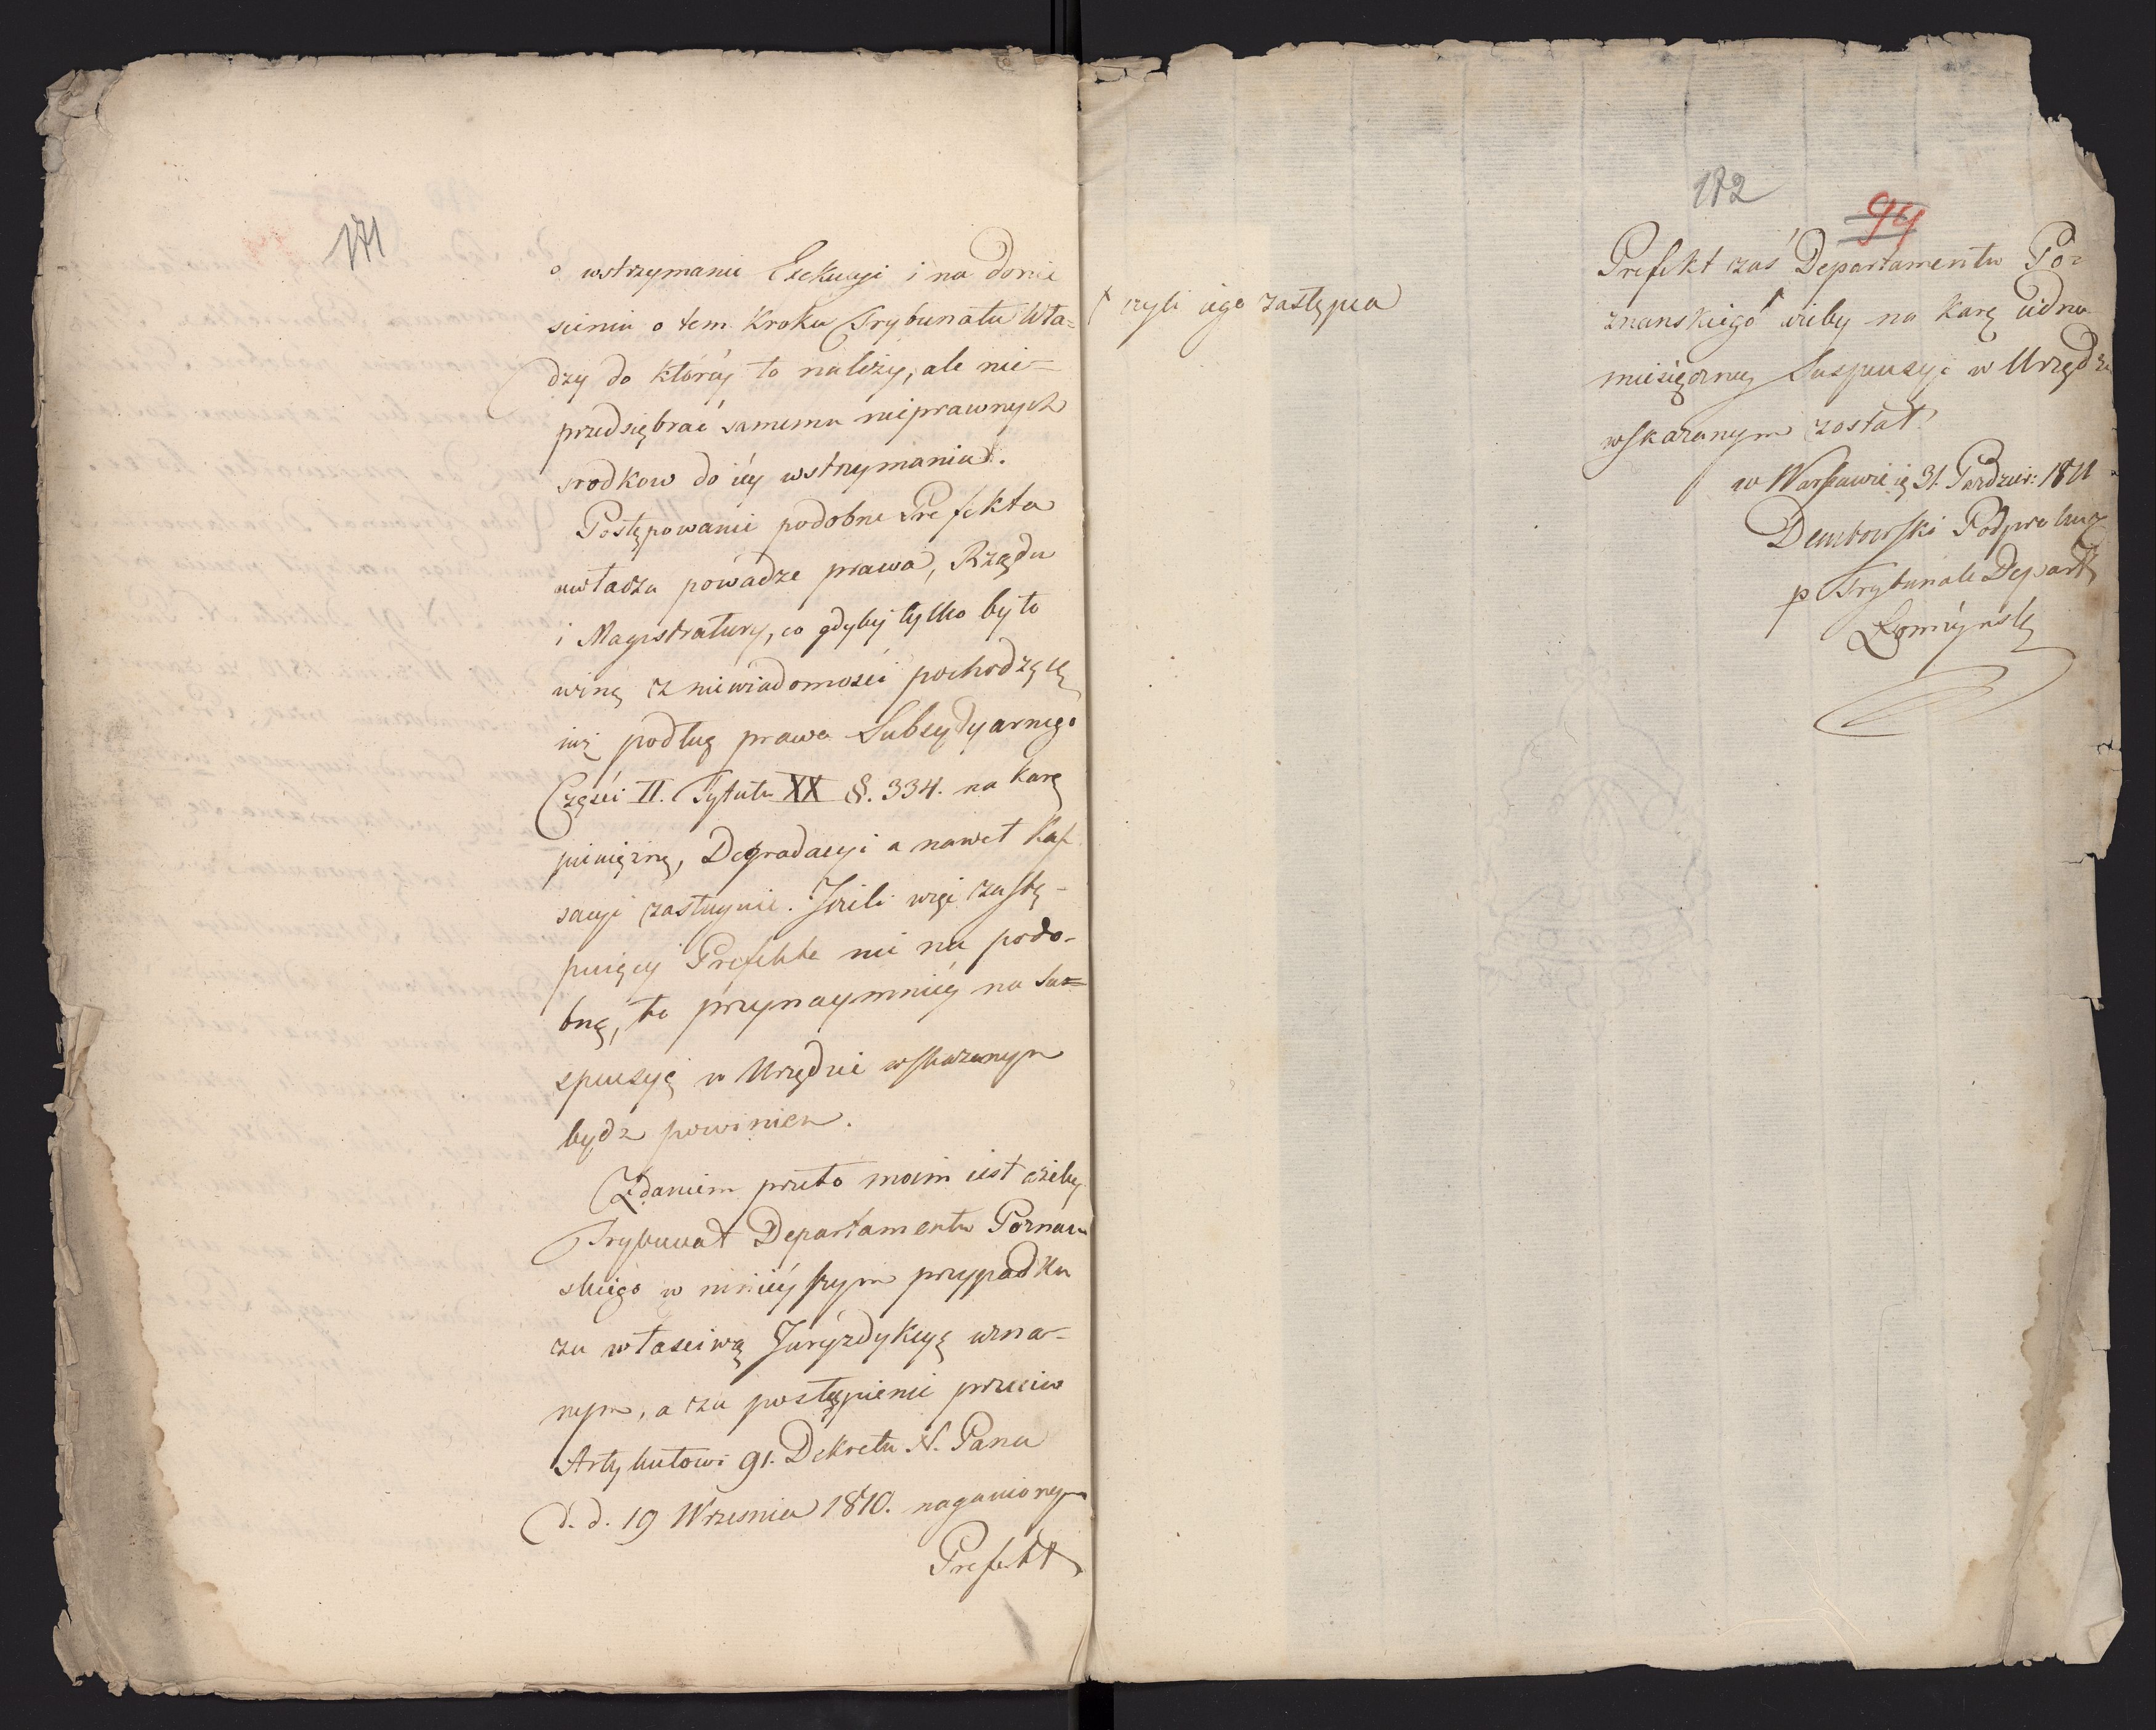 171
o wstrzymanie Exekucyi i na donie
sieniu o tem Kroku Trybunału Wła=
dzy do któréy to należy, ale nie=
przedsiębrać samemu nieprawnych
srodkow do iéy wstrzymania.
Postępowanie podobne Prefekta
uwłacza powadze prawa, Rządu
i Magistratury, co gdyby tylko było
winą z niewiadomosci pochodzącą
iuż podług prawa Subsydyarnego
Częsci II. Tytułu XX §. 334. na karę
pieniężną, Degradacyi a nawet Kas
sacyi zasługuie. Jeżeli więc zastę-
puiący Prefekta nie na podo-
bną, to przynaymniéy na Su=
spensyą w Urzędzie wskazanym
bydz powinien.
Zdaniem przeto moim iest ażeby
Trybunał Departamentu Poznań
skiego w ninieyszym przypadku
za własciwą Juryzdykcyą uzna-
nym, a za postąpienie przeciw
Artykułowi 91. Dekretu N. Pana
d. d. 19 Wrzesnia 1810. naganionym
Prefekt
172
94
Prefekt zaś Departamentu Po=
znanskiego ⸢ żeby na karę iedno
† czyli iego zastępca
miesięczney Suspensyi w Urzędzie
wskazanym został
w Warszawie 31. Pazdzier: 1811
Dembowski Podprokur
p Trybunale Depart
Łomżyńsk